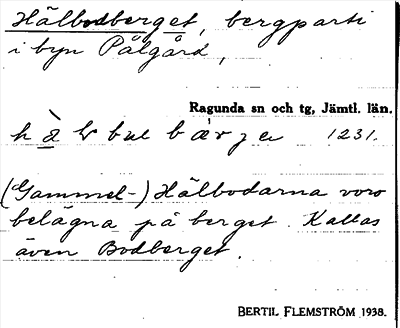 Hälbodberget, bergparti
i byn Pålgård,
Ragunda sn och tg, Jämtl. län.
1231.
(Gammel-) Hälbodarna voro
belägna på berget. Kallas
även Bodberget.
BERTIL FLEMSTRÖM 1938.